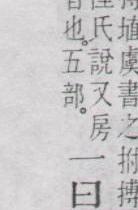 搏埴虞書之拊搏
氏說又房一曰
音也。五部。